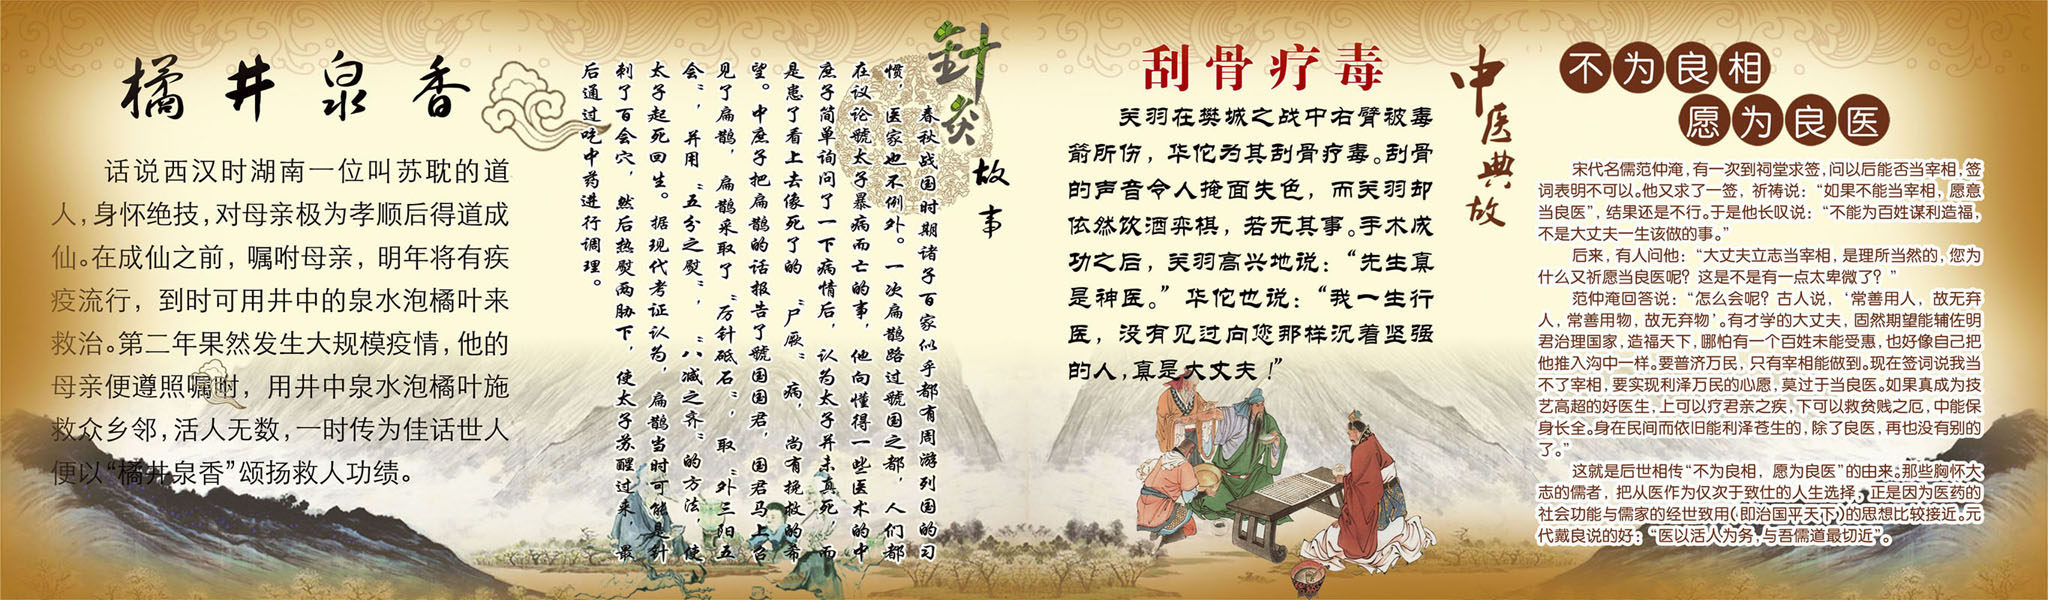 橘井泉香
话说西汉时湖南一位叫苏耽的道
人，身怀绝技，对母亲极为孝顺后得道成
仙。在成仙之前，嘱咐母亲，明年将有疾
疫流行，到时可用井中的泉水泡橘叶来
救治。第二年果然发生大规模疫情，他的
母亲便遵照嘱咐，用井中泉水泡橘叶施
救众乡邻，活人无数，一时传为佳话世人
便以“橘井泉香”颂扬救人功绩。
針灸故事
春秋战国时期诸子百家似乎都有周游列国的习
惯，医家也不例外。一次扁鹊路过虢国之都，人们都
在议论虢太子暴病而亡的事，他向懂得一些医术的中
庶子简单询问了一下病情后，认为太子并未真死，而
是患了看上去像死了的“尸厥”病，尚有挽救的希
望。中庶子把扁鹊的话报告了虢国国君，国君马上召
见了扁鹊，扁鹊采取了“厉针砥石”，取“外三阳五
会”，并用“五分之熨”，“八减之齐”的方法，使
太子起死回生。据现代考证认为，扁鹊当时可能是针
刺了百会穴，然后热熨两胁下，使太子苏醒过来，最
后通过吃中药进行调理。
刮骨疗毒
关羽在樊城之战中右臂被毒
箭所伤，华佗为其刮骨疗毒。刮骨
的声音令人掩面失色，而关羽却
依然饮酒弈棋，若无其事。手术成
功之后，关羽高兴地说：“先生真
是神医。”华佗也说：“我一生行
医，没有见过向您那样沉着坚强
的人，真是大丈夫！”
中医典故
不为良相
愿为良医
宋代名儒范仲淹，有一次到祠堂求签，问以后能否当宰相，签
词表明不可以。他又求了一签，祈祷说：“如果不能当宰相，愿意
当良医”，结果还是不行。于是他长叹说：“不能为百姓谋利造福，
不是大丈夫一生该做的事。”
后来，有人问他：“大丈夫立志当宰相，是理所当然的，您为
什么又祈愿当良医呢？这是不是有一点太卑微了？”
范仲淹回答说：“怎么会呢？古人说，‘常善用人，故无弃
人，常善用物，故无弃物’。有才学的大丈夫，固然期望能辅佐明
君治理国家，造福天下，哪怕有一个百姓未能受惠，也好像自己把
他推入沟中一样。要普济万民，只有宰相能做到。现在签词说我当
不了宰相，要实现利泽万民的心愿，莫过于当良医。如果真成为技
艺高超的好医生，上可以疗君亲之疾，下可以救贫贱之厄，中能保
身长全。身在民间而依旧能利泽苍生的，除了良医，再也没有别的
了。”
这就是后世相传“不为良相，愿为良医”的由来。那些胸怀大
志的儒者，把从医作为仅次于致仕的人生选择，正是因为医药的
社会功能与儒家的经世致用（即治国平天下）的思想比较接近。元
代戴良说的好：“医以活人为务，与吾儒道最切近”。